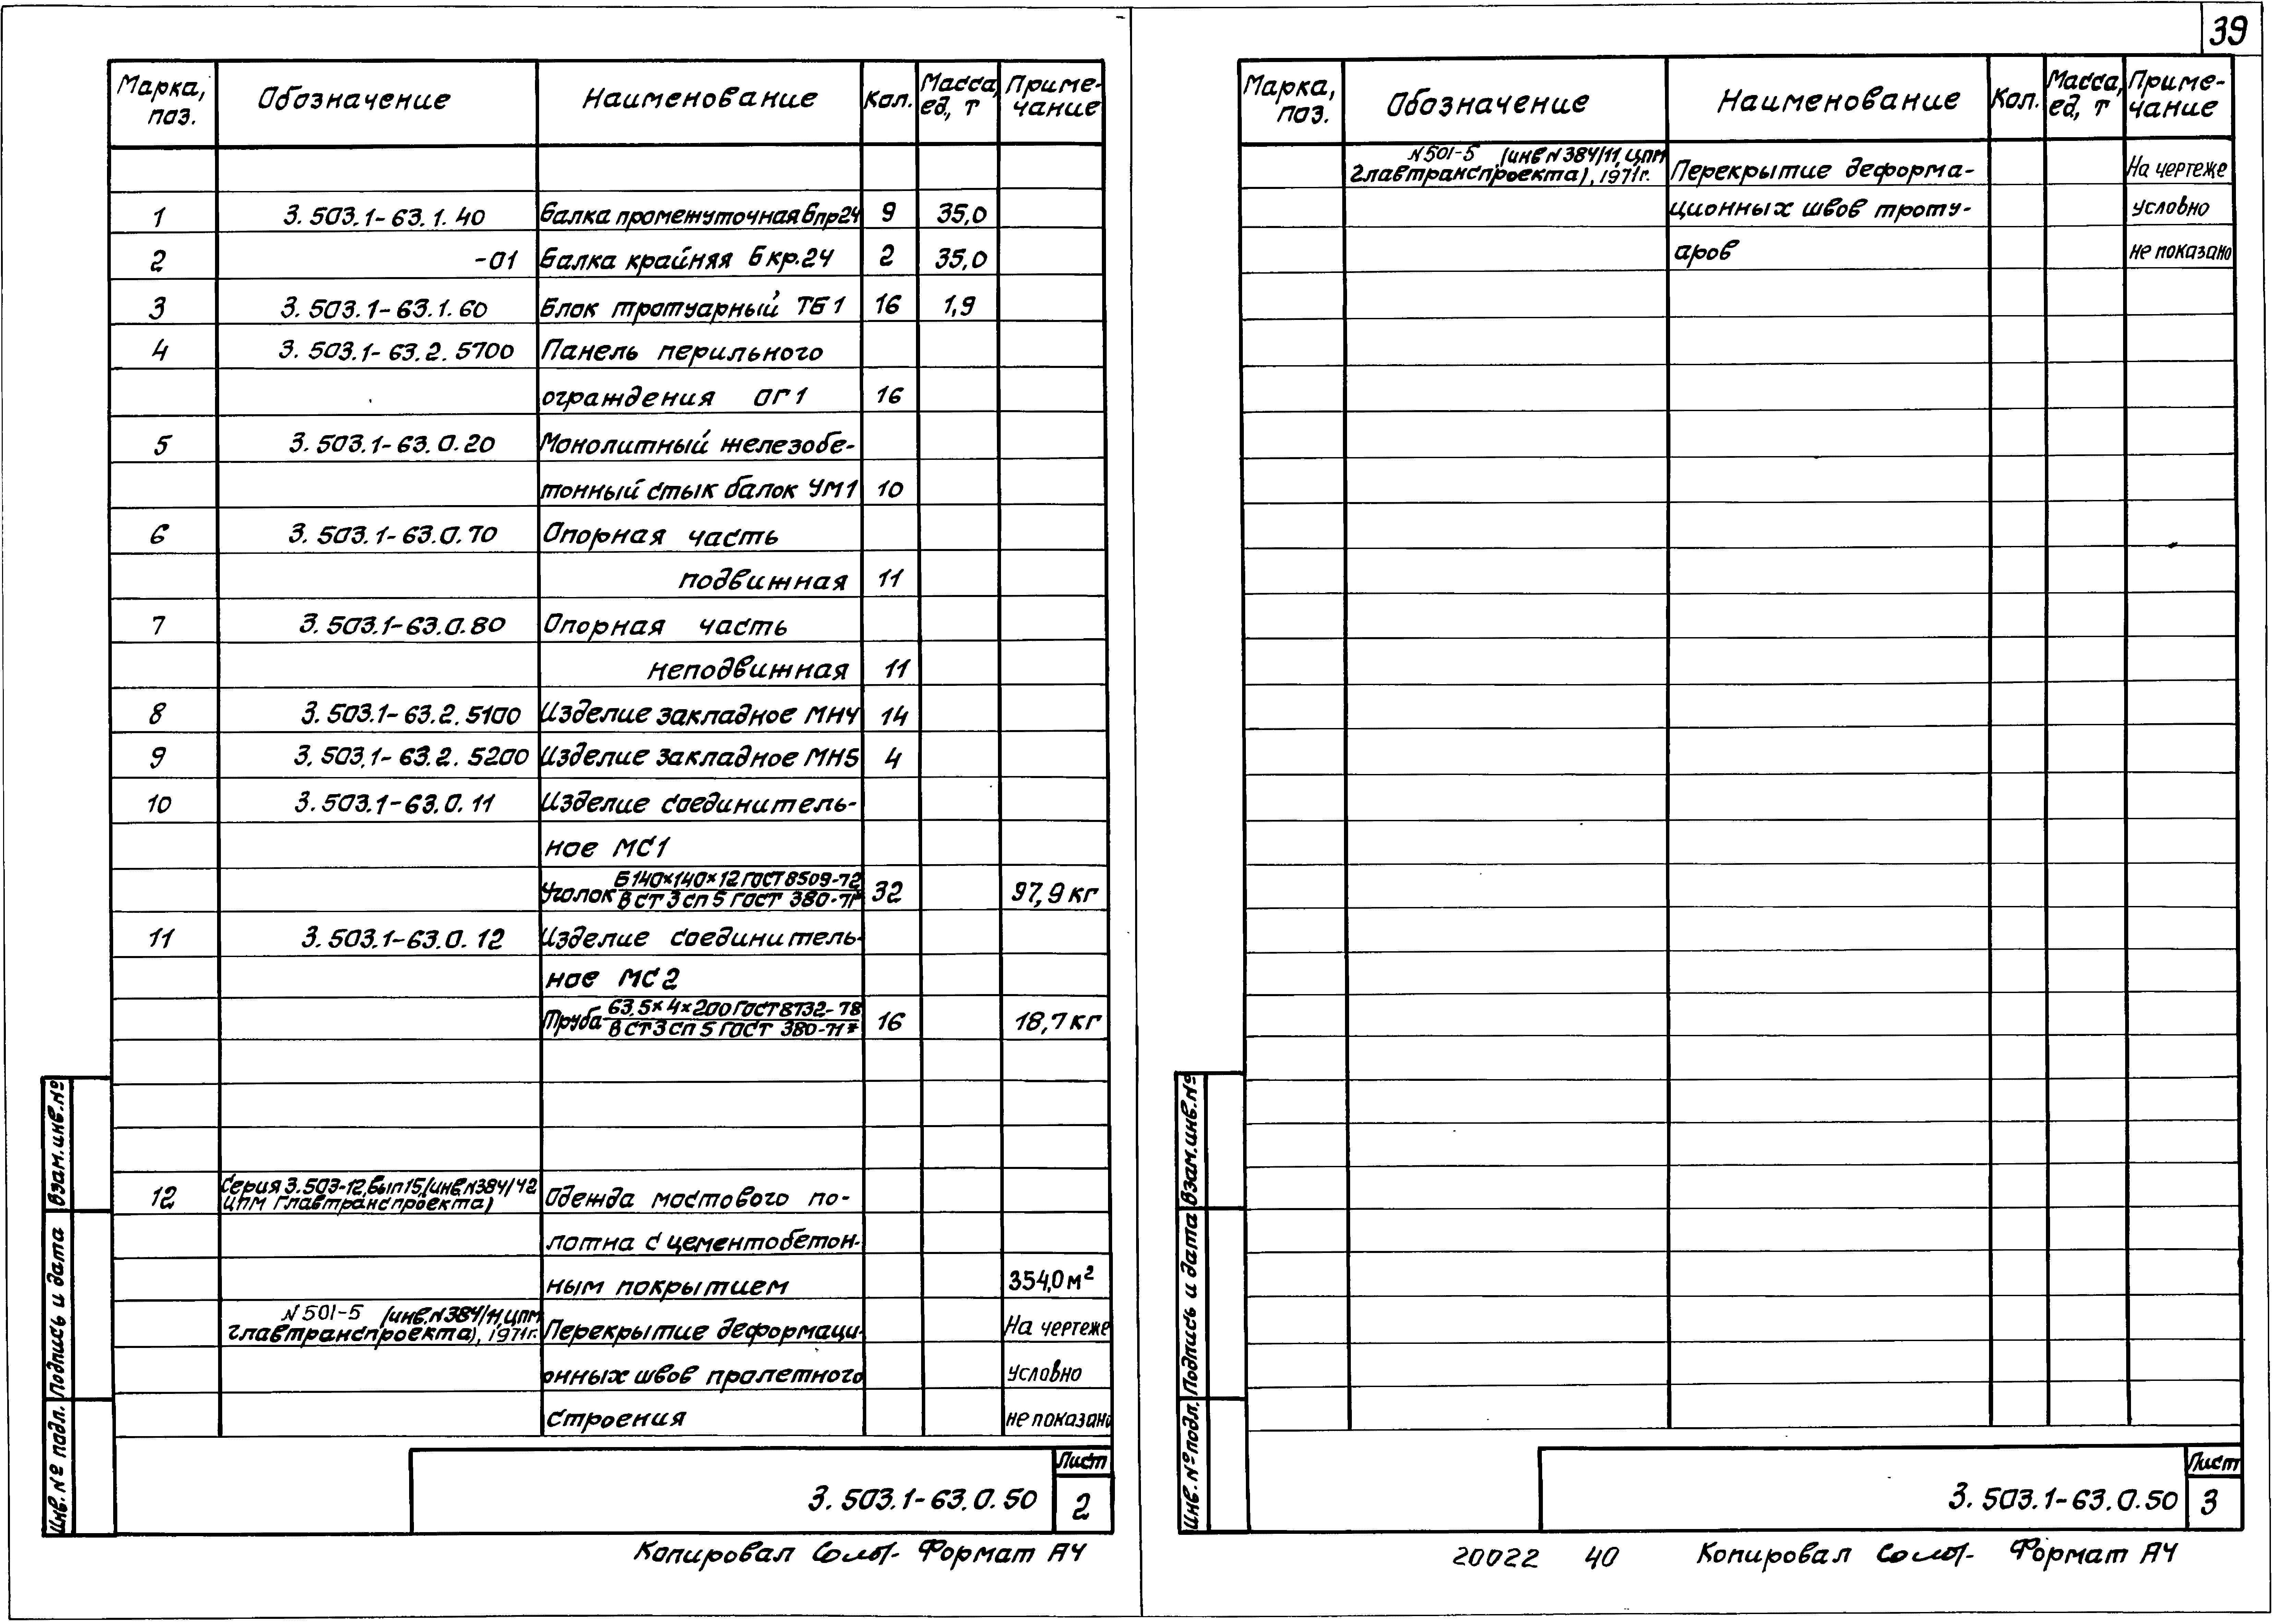 39
Марка, поз. Обозначение Наименование Кол. Масса, ед., т Приме-чание
1 3.503.1-63.1.40 Балка промежуточная Бпр24 9 35,0
2 -01 Балка крайняя Бкр.24 2 35,0
3 3.503.1-63.1.60 Блок тротуарный ТБ1 16 1,9
4 3.503.1-63.2.5700 Панель перильного
ограждения ОГ1 16
5 3.503.1-63.0.20 Монолитный железобе-
тонный стык балок УМ1 10
6 3.503.1-63.0.70 Опорная часть
подвижная 11
7 3.503.1-63.0.80 Опорная часть
неподвижная 11
8 3.503.1-63.2.5100 Изделие закладное МН4 14
9 3.503.1-63.2.5200 Изделие закладное МН5 4
10 3.503.1-63.0.11 Изделие соединитель-
ное МС1
Уголок Б140×140×12 ГОСТ 8509-72 / ВСТ3сп5 ГОСТ 380-71* 32 97,9 кг
11 3.503.1-63.0.12 Изделие соединитель-
ное МС2
Труба 63,5×4×200 ГОСТ 8732-78 / ВСТ3сп5 ГОСТ 380-71* 16 18,7 кг
12 Серия 3.503-12, вып 15, (инв. N384/42
ЦПМ Главтранспроекта) Одежда мостового по-
лотна с цементобетон-
ным покрытием 354,0 м²
N501-5 (инв. N384/11, ЦПМ
Главтранспроекта), 1971г. Перекрытие деформаци- На чертеже
онных швов пролетного условно
строения не показано
Взам. инв. №
Подпись и дата
Инв. № подл.
3.503.1-63.0.50
Лист
2
Копировал Формат А4
Марка, поз. Обозначение Наименование Кол. Масса, ед., т Приме-чание
N501-5 (инв N384/11, ЦПМ
Главтранспроекта), 1971г. Перекрытие деформа- На чертеже
ционных швов троту- условно
аров не показано
Взам. инв. №
Подпись и дата
Инв. № подл.
3.503.1-63.0.50
Лист
3
20022 40 Копировал Формат А4